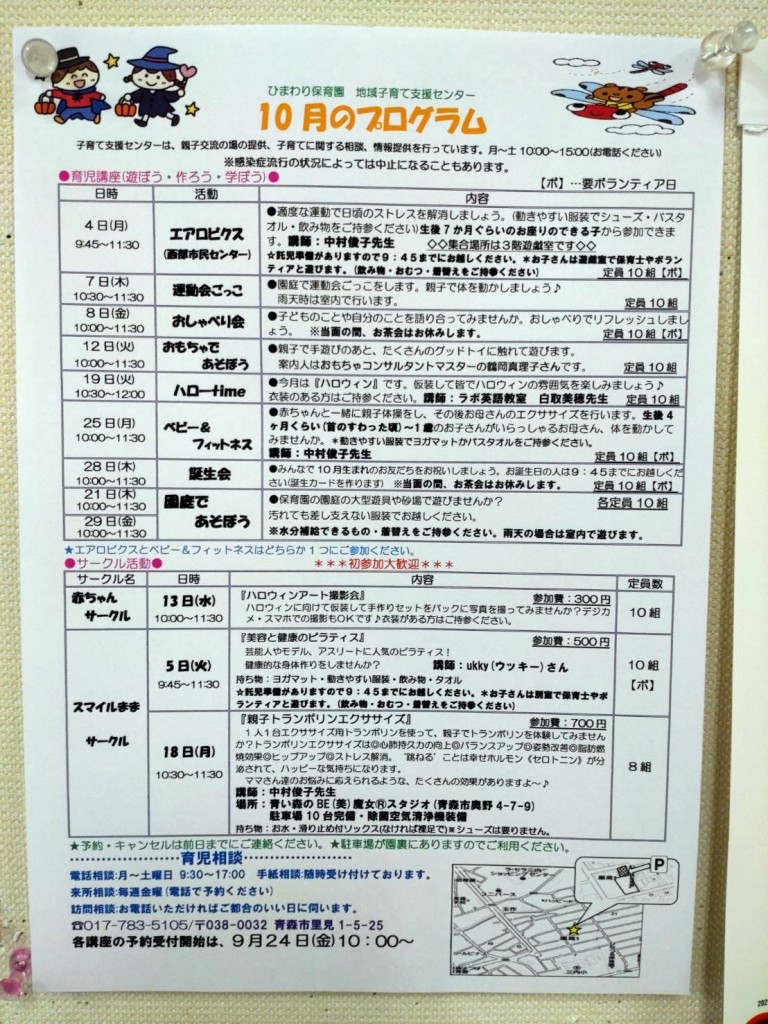 ひまわり保育園 地域子育て支援センター
10月のプログラム
子育て支援センターは、親子交流の場の提供、子育てに関する相談、情報提供を行っています。月~土 10:00~15:00(お電話ください)
※感染症流行の状況によっては中止になることもあります。
●育児講座(遊ぼう・作ろう・学ぼう)●
【ボ】…要ボランティア日
日時 活動 内容
4日(月)
9:45~11:30
エアロビクス
(西部市民センター)
●適度な運動で日頃のストレスを解消しましょう。(動きやすい服装でシューズ・バスタ
オル・飲み物をご持参ください)生後7か月ぐらいのお座りのできる子から参加できま
す。講師:中村俊子先生 ◇◇集合場所は3階遊戯室です◇◇
☆託児準備がありますので9:45までにお越しください。*お子さんは遊戯室で保育士やボラン
ティアと遊びます。(飲み物・おむつ・着替えをご持参ください) 定員10組【ボ】
7日(木)
10:30~11:30
運動会ごっこ
●園庭で運動会ごっこをします。親子で体を動かしましょう♪
雨天時は室内で行います。 定員10組
8日(金)
10:00~11:30
おしゃべり会
●子どものことや自分のことを語り合ってみませんか。おしゃべりでリフレッシュしまし
ょう。 ※当面の間、お茶会はお休みします。 定員10組【ボ】
12日(火)
10:00~11:30
おもちゃで
あそぼう
●親子で手遊びのあと、たくさんのグッドトイに触れて遊びます。
案内人はおもちゃコンサルタントマスターの鶴岡真理子さんです。 定員10組
19日(火)
10:30~12:00
ハローtime
●今月は『ハロウィン』です。仮装して皆でハロウィンの雰囲気を楽しみましょう♪
衣装のある方はご持参ください。講師:ラボ英語教室 白取美穂先生 定員10組
25日(月)
10:00~11:30
ベビー&
フィットネス
●赤ちゃんと一緒に親子体操をし、その後お母さんのエクササイズを行います。生後4
ヶ月くらい(首のすわった頃)~1歳のお子さんがいらっしゃるお母さん、体を動かして
みませんか。*動きやすい服装でヨガマットかバスタオルをご持参ください。
講師:中村俊子先生 定員10組【ボ】
28日(木)
10:00~11:30
誕生会
●みんなで10月生まれのお友だちをお祝いしましょう。お誕生日の人は9:45にお越しくだ
さい(誕生カードを作ります) ※当面の間、お茶会はお休みします。 定員10組【ボ】
21日(木)
10:00~11:30
29日(金)
10:00~11:30
園庭で
あそぼう
●保育園の園庭の大型遊具や砂場で遊びませんか? 各定員10組
汚れても差し支えない服装でお越しください。
※水分補給できるもの・着替えをご持参ください。雨天の場合は室内で遊びます。
★エアロビクスとベビー&フィットネスはどちらか1つにご参加ください。
●サークル活動● ***初参加大歓迎***
サークル名 日時 内容 定員数
赤ちゃん
サークル
13日(水)
10:00~11:30
『ハロウィンアート撮影会』 参加費:300円
ハロウィンに向けて仮装して手作りセットをバックに写真を撮ってみませんか?デジカ
メ・スマホでの撮影もOKです♪衣装がある方はご持参ください。
10組
スマイルまま
サークル
5日(火)
9:45~11:30
『美容と健康のピラティス』 参加費:500円
芸能人やモデル、アスリートに人気のピラティス!
健康的な身体作りをしませんか? 講師:ukky(ウッキー)さん
持ち物:ヨガマット・動きやすい服装・飲み物・タオル
☆託児準備がありますので9:45までにお越しください。*お子さんは別室で保育士やボ
ランティアと遊びます。(飲み物・おむつ・着替えをご持参ください)
10組
【ボ】
18日(月)
10:30~11:30
『親子トランポリンエクササイズ』 参加費:700円
1人1台エクササイズ用トランポリンを使って、親子でトランポリンを体験してみませ
んか?トランポリンエクササイズは◎心肺持久力の向上◎バランスアップ◎姿勢改善◎脂肪燃
焼効果◎ヒップアップ◎ストレス解消。“跳ねる”ことは幸せホルモン《セロトニン》が分
泌されて、ハッピーな気持ちになります。
ママさん達のお悩みに応えられるような、たくさんの効果がありますよ~♪
講師:中村俊子先生
場所:青い森のBE(美)魔女Ⓡスタジオ(青森市奥野4-7-9)
駐車場10台完備・除菌空気清浄機装備
持ち物:お水・滑り止め付ソックス(なければ裸足で)※シューズは要りません。
8組
★予約・キャンセルは前日までにご連絡ください。★駐車場が園裏にありますのでご利用ください。
育児相談
電話相談:月~土曜日 9:30~17:00 手紙相談:随時受け付けております。
来所相談:毎週金曜(電話で予約ください)
訪問相談:お電話いただければご都合のいい日に伺います。
☎017-783-5105/〒038-0032 青森市里見1-5-25
各講座の予約受付開始は、9月24日(金)10:00~
P